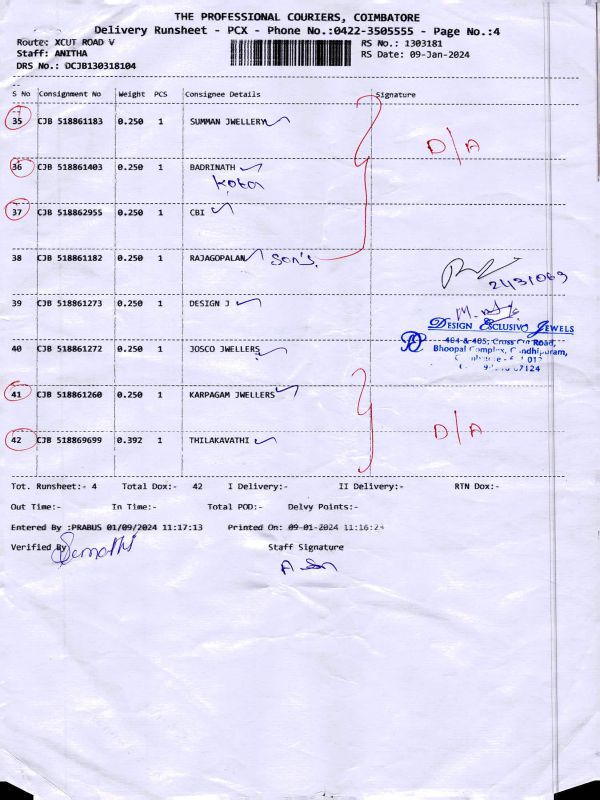 THE PROFESSIONAL COURIERS, COIMBATORE
Delivery Runsheet - PCX - Phone No.:0422-3505555 - Page No.:4
Route: XCUT ROAD V RS No.: 1303181
Staff: ANITHA RS Date: 09-Jan-2024
DRS No.: DCJB130318104
S No Consignment No Weight PCS Consignee Details Signature
35 CJB 518861183 0.250 1 SUMMAN JWELLERY
D/A
36 CJB 518861403 0.250 1 BADRINATH
37 CJB 518862955 0.250 1 CBI
38 CJB 518861182 0.250 1 RAJAGOPALAN Son's.
2431069
39 CJB 518861273 0.250 1 DESIGN J
DESIGN EXCLUSIVO JEWELS
404 & 405, Cross Cut Road,
Bhoopal Complex, Gandhipuram,
40 CJB 518861272 0.250 1 JOSCO JWELLERS
41 CJB 518861260 0.250 1 KARPAGAM JWELLERS
D/A
42 CJB 518869699 0.392 1 THILAKAVATHI
Tot. Runsheet:- 4 Total Dox:- 42 I Delivery:- II Delivery:- RTN Dox:-
Out Time:- In Time:- Total POD:- Delvy Points:-
Entered By :PRABUS 01/09/2024 11:17:13 Printed On: 09-01-2024 11:16:24
Verified By Staff Signature